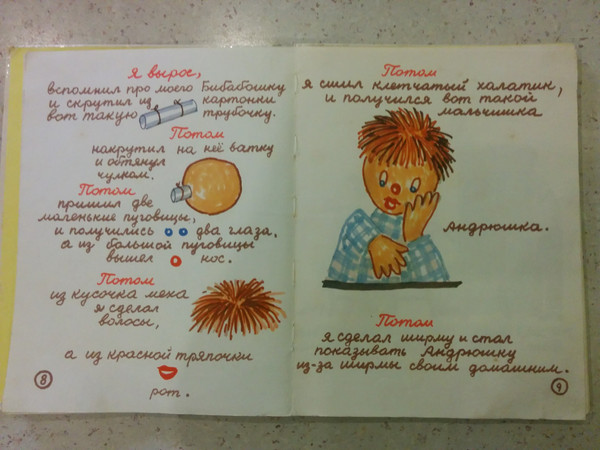 Я вырос,
вспомнил про моего Бибабошку
и скрутил из картонки
вот такую трубочку.
Потом
накрутил на неё ватку
и обтянул
чулком.
Потом
пришил две
маленькие пуговицы,
и получились два глаза,
а из большой пуговицы
вышел нос.
Потом
из кусочка меха
я сделал
волосы,
а из красной тряпочки
рот.
8
Потом
я сшил клетчатый халатик,
и получился вот такой
мальчишка
Андрюшка.
Потом
я сделал ширму и стал
показывать Андрюшку
из-за ширмы своим домашним.
9